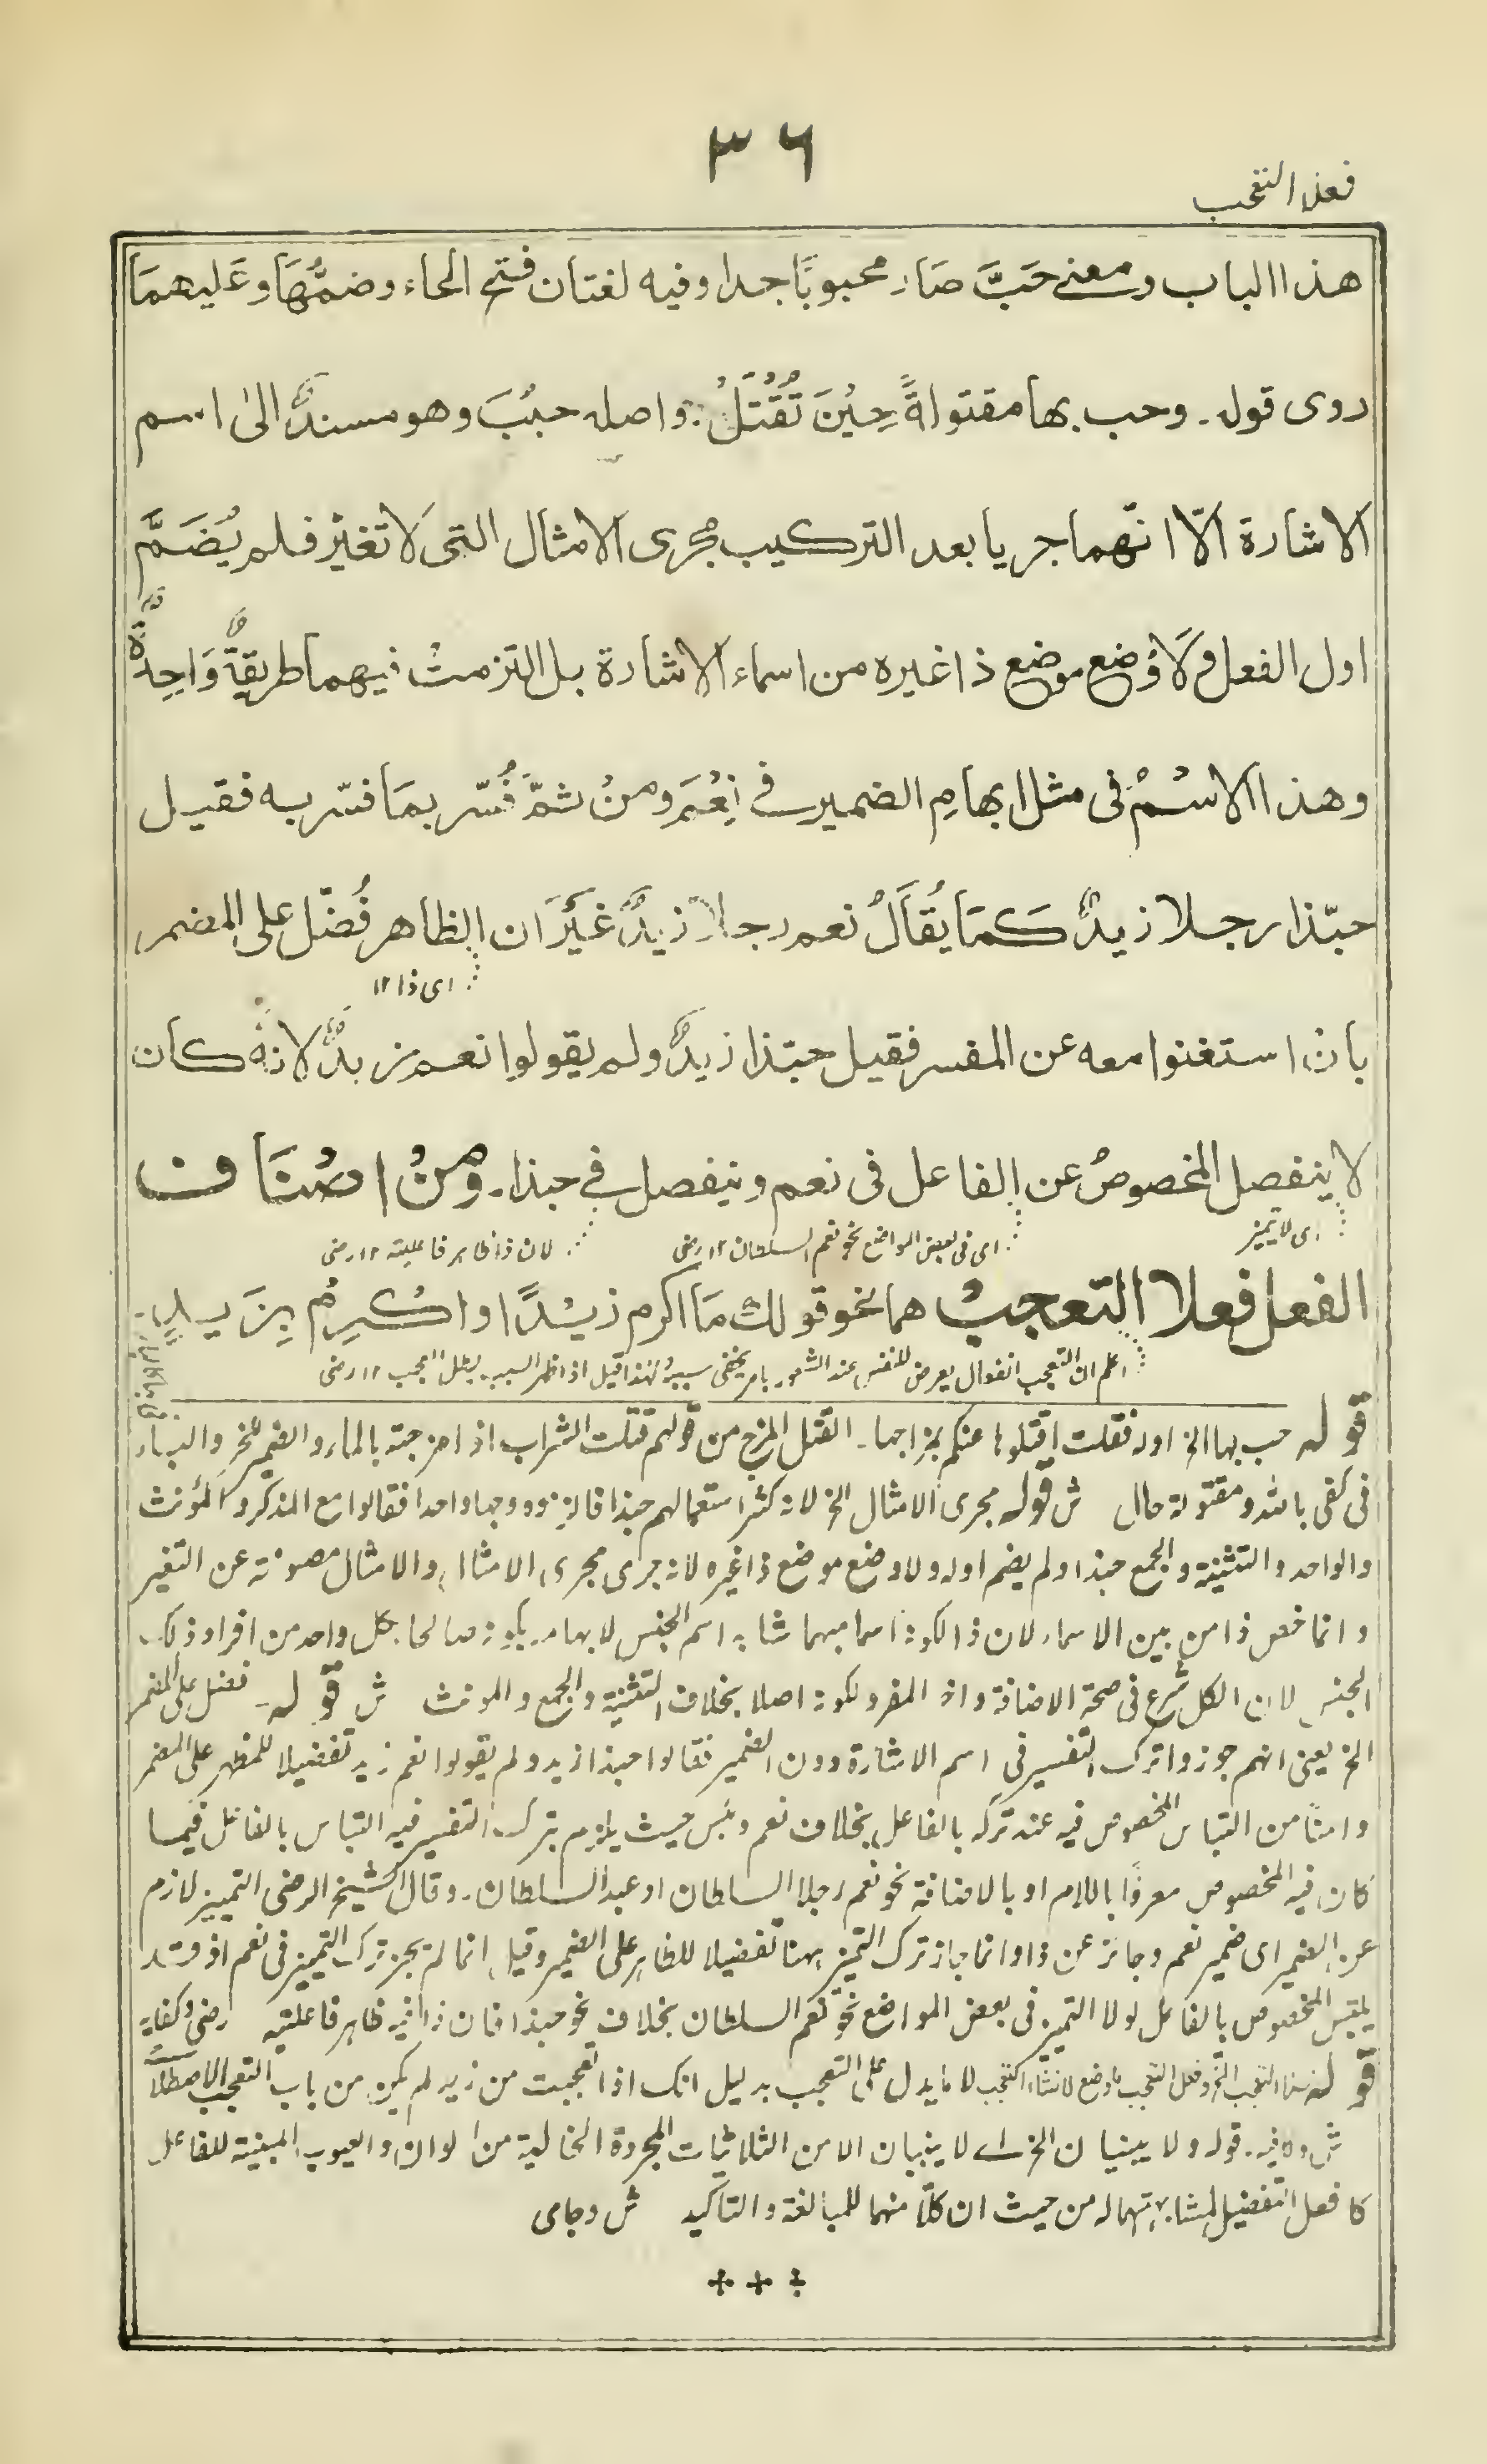 ٣٦
فعلا التعجب
هذا الباب ومعنى حَبَّ صَار محبوبًا جدا وفيه لغتان فتح الحاء وضمُّهَا وعَليهمَا
روى قوله . وحب بها مقتولةً حِيْنَ تُقْتَلُ . واصله حبُبَ وهو مسندٌ الى اسم
الاشارة الّا انّهما جريا بعد التركيب مجرى الامثال التى لَا تغيّر فلم يُضَمَّ
اول الفعل ولَا وُضع موضع ذا غيره من اسماء الاشارة بل التزمتْ فيهما طريقةٌ وَاحِدةٌ
وهذا الاسْمُ فى مثل ابهامِ الضمير فى نِعْمَ ومنْ ثمَّ فُسّر بمَا فسّر به فقيل
حبّذا رجلا زيدٌ كَمَا يُقَالُ نعم رجلا زيدٌ غيْرَ ان الظاهر فُضّل على المضمر
اى ذا ١٢
بان استغنوا معه عن المفسر فقيل حبّذا زيدٌ ولم يقولوا نعم زيدٌ لانهُ كان
لا ينفصل المخصوصُ عن الفاعل فى نعم وينفصل فى حبذا . ومنْ اصْنَاف
اى لا يتميز
اى فى بعض المواضع نحو نعم السلطان ١٢ رضى
لان ذا ظاهر فاعليته ١٢ رضى
الفعل فعلا التعجبْ هما نحو قولك مَا اكرم زيْدًا واكْرِمْ بِزَيدٍ
اعلم ان التعجب انفعال يعرض للنفس عند الشعور بامر يخفى سببه ولهذا قيل اذا ظهر السبب بطل العجب ١٢ رضى
قوله حب بها الخ اوله فقلت اقتلوها عنكم بمزاجها . القتل المزج من قولهم قتلت الشراب اذا مزجته بالماء والضمير للخمر والباء
فى كفى بالله ومقتولة حال ش قوله مجرى الامثال الخ لانه كثر استعمالهم حبذا فالزموه وجها واحدا فقالوا مع المذكر والمؤنث
والواحد والتثنية والجمع حبذا ولم يضم اوله ولا وضع موضع ذا غيره لانه جرى مجرى الامثال والامثال مصونة عن التغير
وانما خص ذا من بين الاسماء لان ذا لكونه اسما مبهما شابه اسم الجنس لابهامه بكونه صالحا لكل واحد من افراد ذلك
الجنس لان الكل شرع فى صحة الاضافة واذ المفرد لكونه اصلا بخلاف التثنية والجمع والمونث ش قوله . فضل على المضمر
الخ يعنى انهم جوزوا ترك التفسير فى اسم الاشارة دون الضمير فقالوا حبذا زيد ولم يقولوا نعم زيد تفضيلا للمظهر على المضمر
وامنًا من التباس المخصوص فيه عند تركه بالفاعل بخلاف نعم وبئس حيث يلزم بترك التفسير فيه التباس بالفاعل فيما
كان فيه المخصوص معرفًا باللام او بالاضافة نحو نعم رجلا السلطان او عبد السلطان . وقال الشيخ الرضى التمييز لازم
عن الضمير اى ضمير نعم وجائز عن ذا وانما جاز ترك التميز ههنا تفضيلا للظاهر على الضمير وقيل انما لم يجز ترك التميز فى نعم اذ قد
يلتبس المخصوص بالفاعل لولا التميز فى بعض المواضع نحو نعم السلطان بخلاف نحو حبذا فان ذا فيه ظاهر فاعليته رضى وكفايه
قوله فعلا التعجب الخ وفعل التعجب ما وضع لانشاء التعجب لا ما يدل على التعجب بدليل انك اذا تعجبت من زيد لم يكن من باب التعجب الاصطلاحى
ش وافيه . قوله ولا يبنيان الخ اى لا يبنيان الا من الثلاثيات المجردة الخالية من الوان والعيوب المبنية للفاعل
كافعل التفضيل لمشابهتهما له من حيث ان كلًا منهما للمبالغة والتاكيد ش وجامى